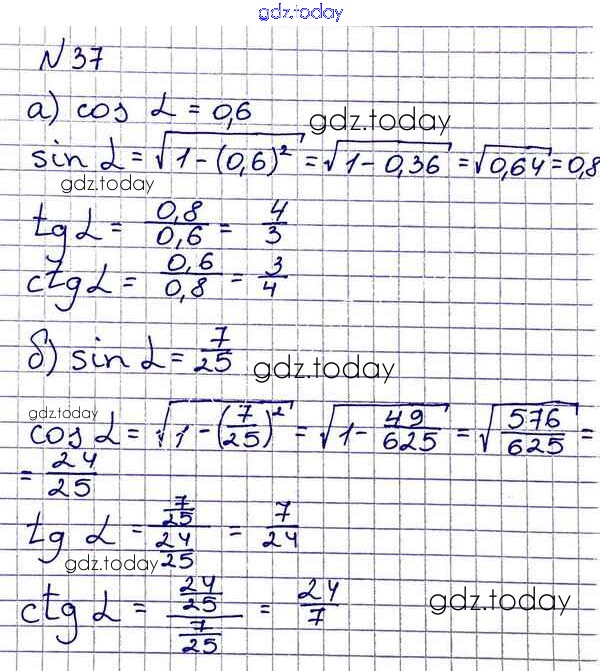 gdz.today
N 37
а) cos α = 0,6
gdz.today
sin α = √(1-(0,6)²) = √(1-0,36) = √0,64 = 0,8
gdz.today
tg α = 0,8/0,6 = 4/3
ctg α = 0,6/0,8 = 3/4
б) sin α = 7/25
gdz.today
gdz.today
cos α = √(1-(7/25)²) = √(1-49/625) = √(576/625) =
= 24/25
tg α = (7/25)/(24/25) = 7/24
gdz.today
ctg α = (24/25)/(7/25) = 24/7
gdz.today